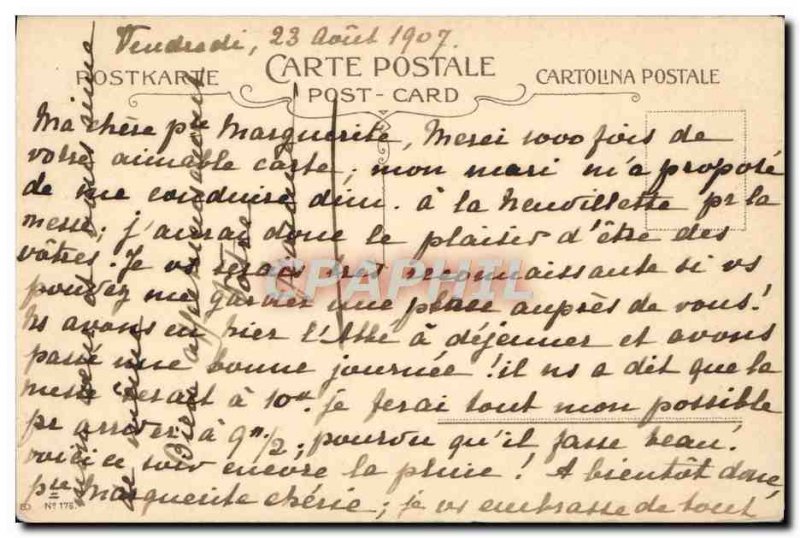 Vendredi, 23 Août 1907.
POSTKARTE CARTE POSTALE CARTOLINA POSTALE
POST-CARD
Ma chère pte Marguerite, Merci 1000 fois de
votre aimable carte; mon mari m'a proposé
de me conduire dim. à la Neuvillette pr la
messe; j'aurai donc le plaisir d'être des
vôtres. Je vs serais très reconnaissante si vs
pouvez me garder une place auprès de vous!
Ns avons eu hier l'Abbé à déjeuner et avons
passé une bonne journée! il ns a dit que la
messe serait à 10h. je ferai tout mon possible
pr arriver à 9h 1/2; pourvu qu'il fasse beau!
voici ce soir encore la pluie! A bientôt donc,
pte Marguerite chérie; je vs embrasse de tout
de même
Bien affectueusement
Votre
CPAPHIL
ED No 178